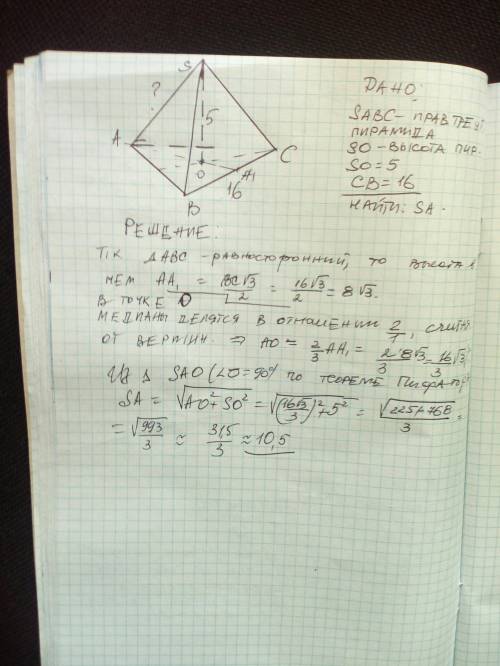 S
?
5
A
O
C
A₁
16
B
ДАНО:
SABC - ПРАВ ТРЕУГ
ПИРАМИДА
SO - ВЫСОТА ПИР.
SO = 5
CB = 16
НАЙТИ: SA -
РЕШЕНИЕ:
Т.К ΔABC - РАВНОСТОРОННИЙ, ТО ВЫСОТА В
НЕМ AA₁ = BC√3/2 = 16√3/2 = 8√3.
В ТОЧКЕ O
МЕДИАНЫ ДЕЛЯТСЯ В ОТНОШЕНИИ 2/1, СЧИТАЯ
ОТ ВЕРШИН. ⇒ AO = 2/3 AA₁ = 2·8√3/3 = 16√3/3
ИЗ Δ SAO (∠O = 90°) ПО ТЕОРЕМЕ ПИФАГОРА
SA = √AO² + SO² = √(16√3/3)² + 5² = √225+768/3 =
= √993/3 ≈ 31,5/3 ≈ 10,5